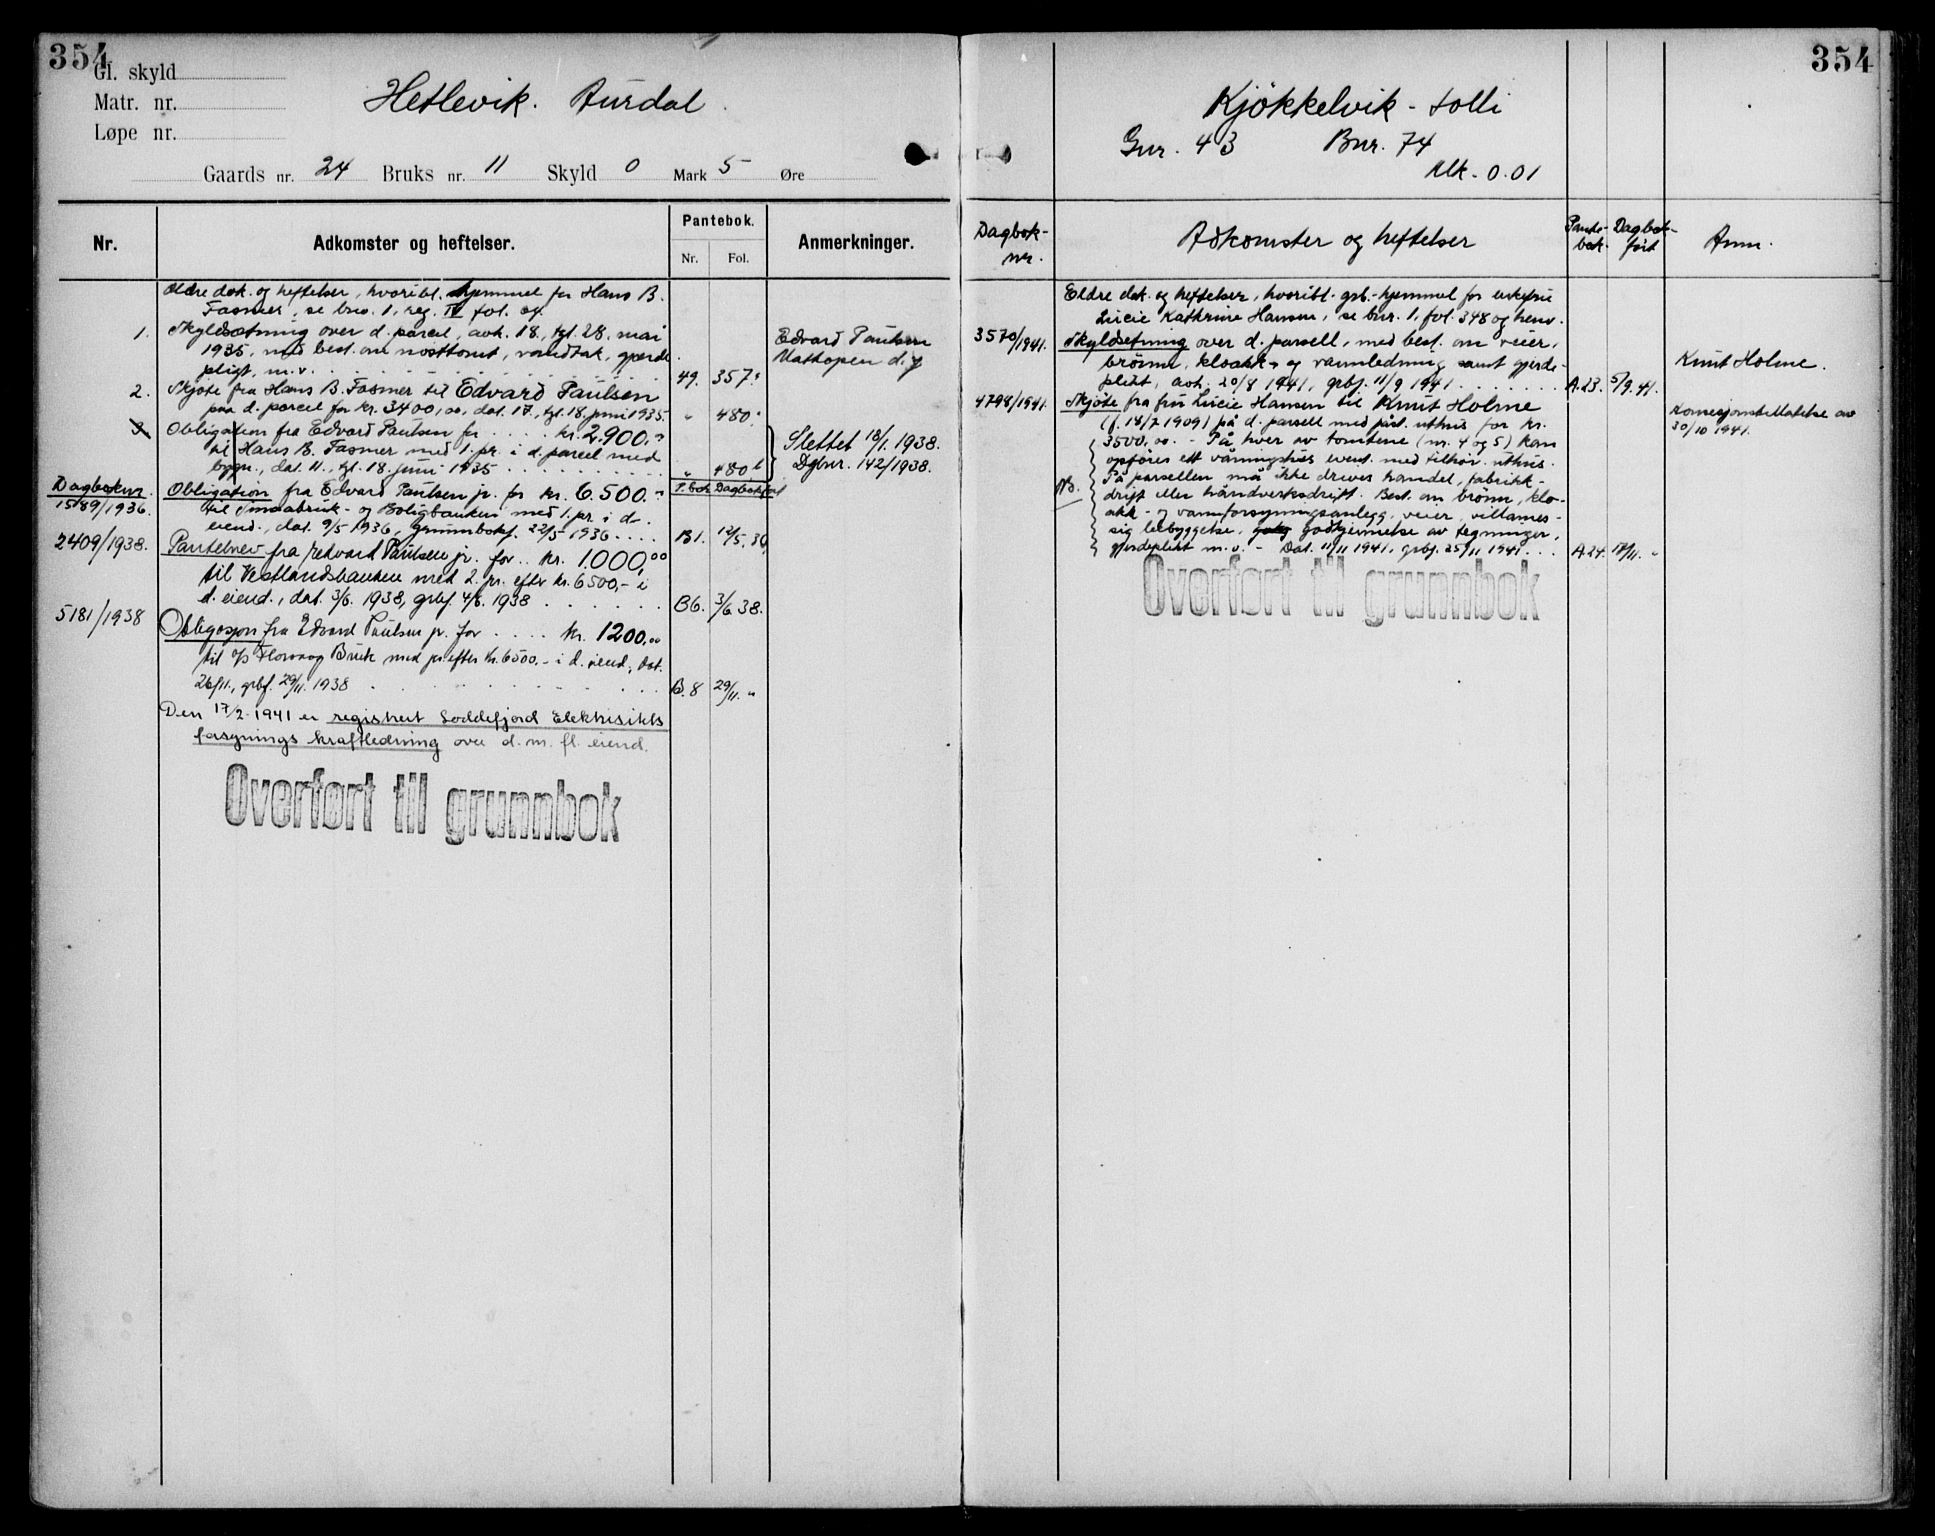 354
Gl. skyld
Matr. nr.
Løpe nr.
Hetlevik. Aurdal.
Gaards nr. 24 Bruks nr. 11 Skyld 0 Mark 5 Øre
Nr.
Adkomster og heftelser.
Pantebok.
Nr. Fol.
Anmerkninger.
Eldre dok. og heftelser, hvoribl. hjemmel for Hans B.
Fasmer, se brno. 1, reg. IV fol.
1. Skyldsetning over d. parcel, avh. 18., tgl. 28. mai
1935, med best. om nosttomt, vandtak, gjerde
pligt, m.v. 49. 357.
Edvard Paulsen
Mathopen d.y
2. Skjöte fra Hans B. Fasmer til Edvard Paulsen
paa d. parcel for kr. 3400,00, dat. 17., tgl. 18. juni 1935. " 480.
3. Obligation fra Edvard Paulsen for .... kr. 2.900.
til Hans B. Fasmer med 1. pr. i d. parcel med
bygn., dat. 11., tgl. 18. juni 1935 " 480 b
Slettet 18/1. 1938.
Dgbnr. 142/1938.
Dagboknr. P.bok Dagbokført
1589/1936. Obligation fra Edvard Paulsen jr. for kr. 6.500.
til Småbruk- og Boligbanken med 1. pr. i d.
eiend., dat. 9/5 1936, grunnbokf. 22/5 1936 .... B1. 12/5. 36
2409/1938. Pantebrev fra Edvard Paulsen jr. for .. kr. 1.000,00
til Vestlandsbanken med 2. pr. efter kr. 6500,- i
d. eiend., dat. 3/6. 1938, grbf. 4/6. 1938 B6. 3/6 38.
5181/1938 Obligasjon fra Edvard Paulsen jr. for .... kr. 1200.00
til A/S Florvaag Bruk med pr. efter kr. 6500.- i d. eiend., dat.
26/11., grbf. 29/11. 1938 B.8 29/11. "
Den 17/2-1941 er registrert Loddefjord Elektrisitets
forsynings kraftledning over d. m. fl. eiend.
Overført til grunnbok
354
Kjökkelvik - Solli
Gnr. 43 Bnr. 74
Mk. 0.01
Dagbok-
nr.
Adkomster og heftelser
Pante-
bok.
Dagbok-
ført
Anm.
Eldre dok. og heftelser, hvoribl. grb.-hjemmel for enkefrue
Lucie Kathrine Hansen, se bnr. 1, fol. 348 og henv.
3570/1941. Skyldsetning over d. parsell, med best. om veier,
brönn, kloakk- og vannledning samt gjerde-
plikt, avh. 20/8 1941, grbf. 11/9 1941 A.23. 5/9. 41.
Knut Holme.
4798/1941. Skjöte fra fru Lucie Hansen til Knut Holme
(f. 14/7 1909) på d. parsell med påst. uthus for kr.
3500,00. - På hver av tomtene (nr. 4 og 5) kan
oppföres ett våningshus event. med tilhör. uthus.
På parsellen må ikke drives handel, fabrikk-
drift eller håndverksdrift. Best. om brönn, klo-
akk- og vannforsyningsanlegg, veier, villames-
sig bebyggelse, godkjennelse av tegninger,
gjerdeplikt m.v. - Dat. 11/11 1941, grbf. 25/11 1941 ... A.24. 17/11. "
NB.
Konsesjonstillatelse av
30/10 1941.
Overført til grunnbok